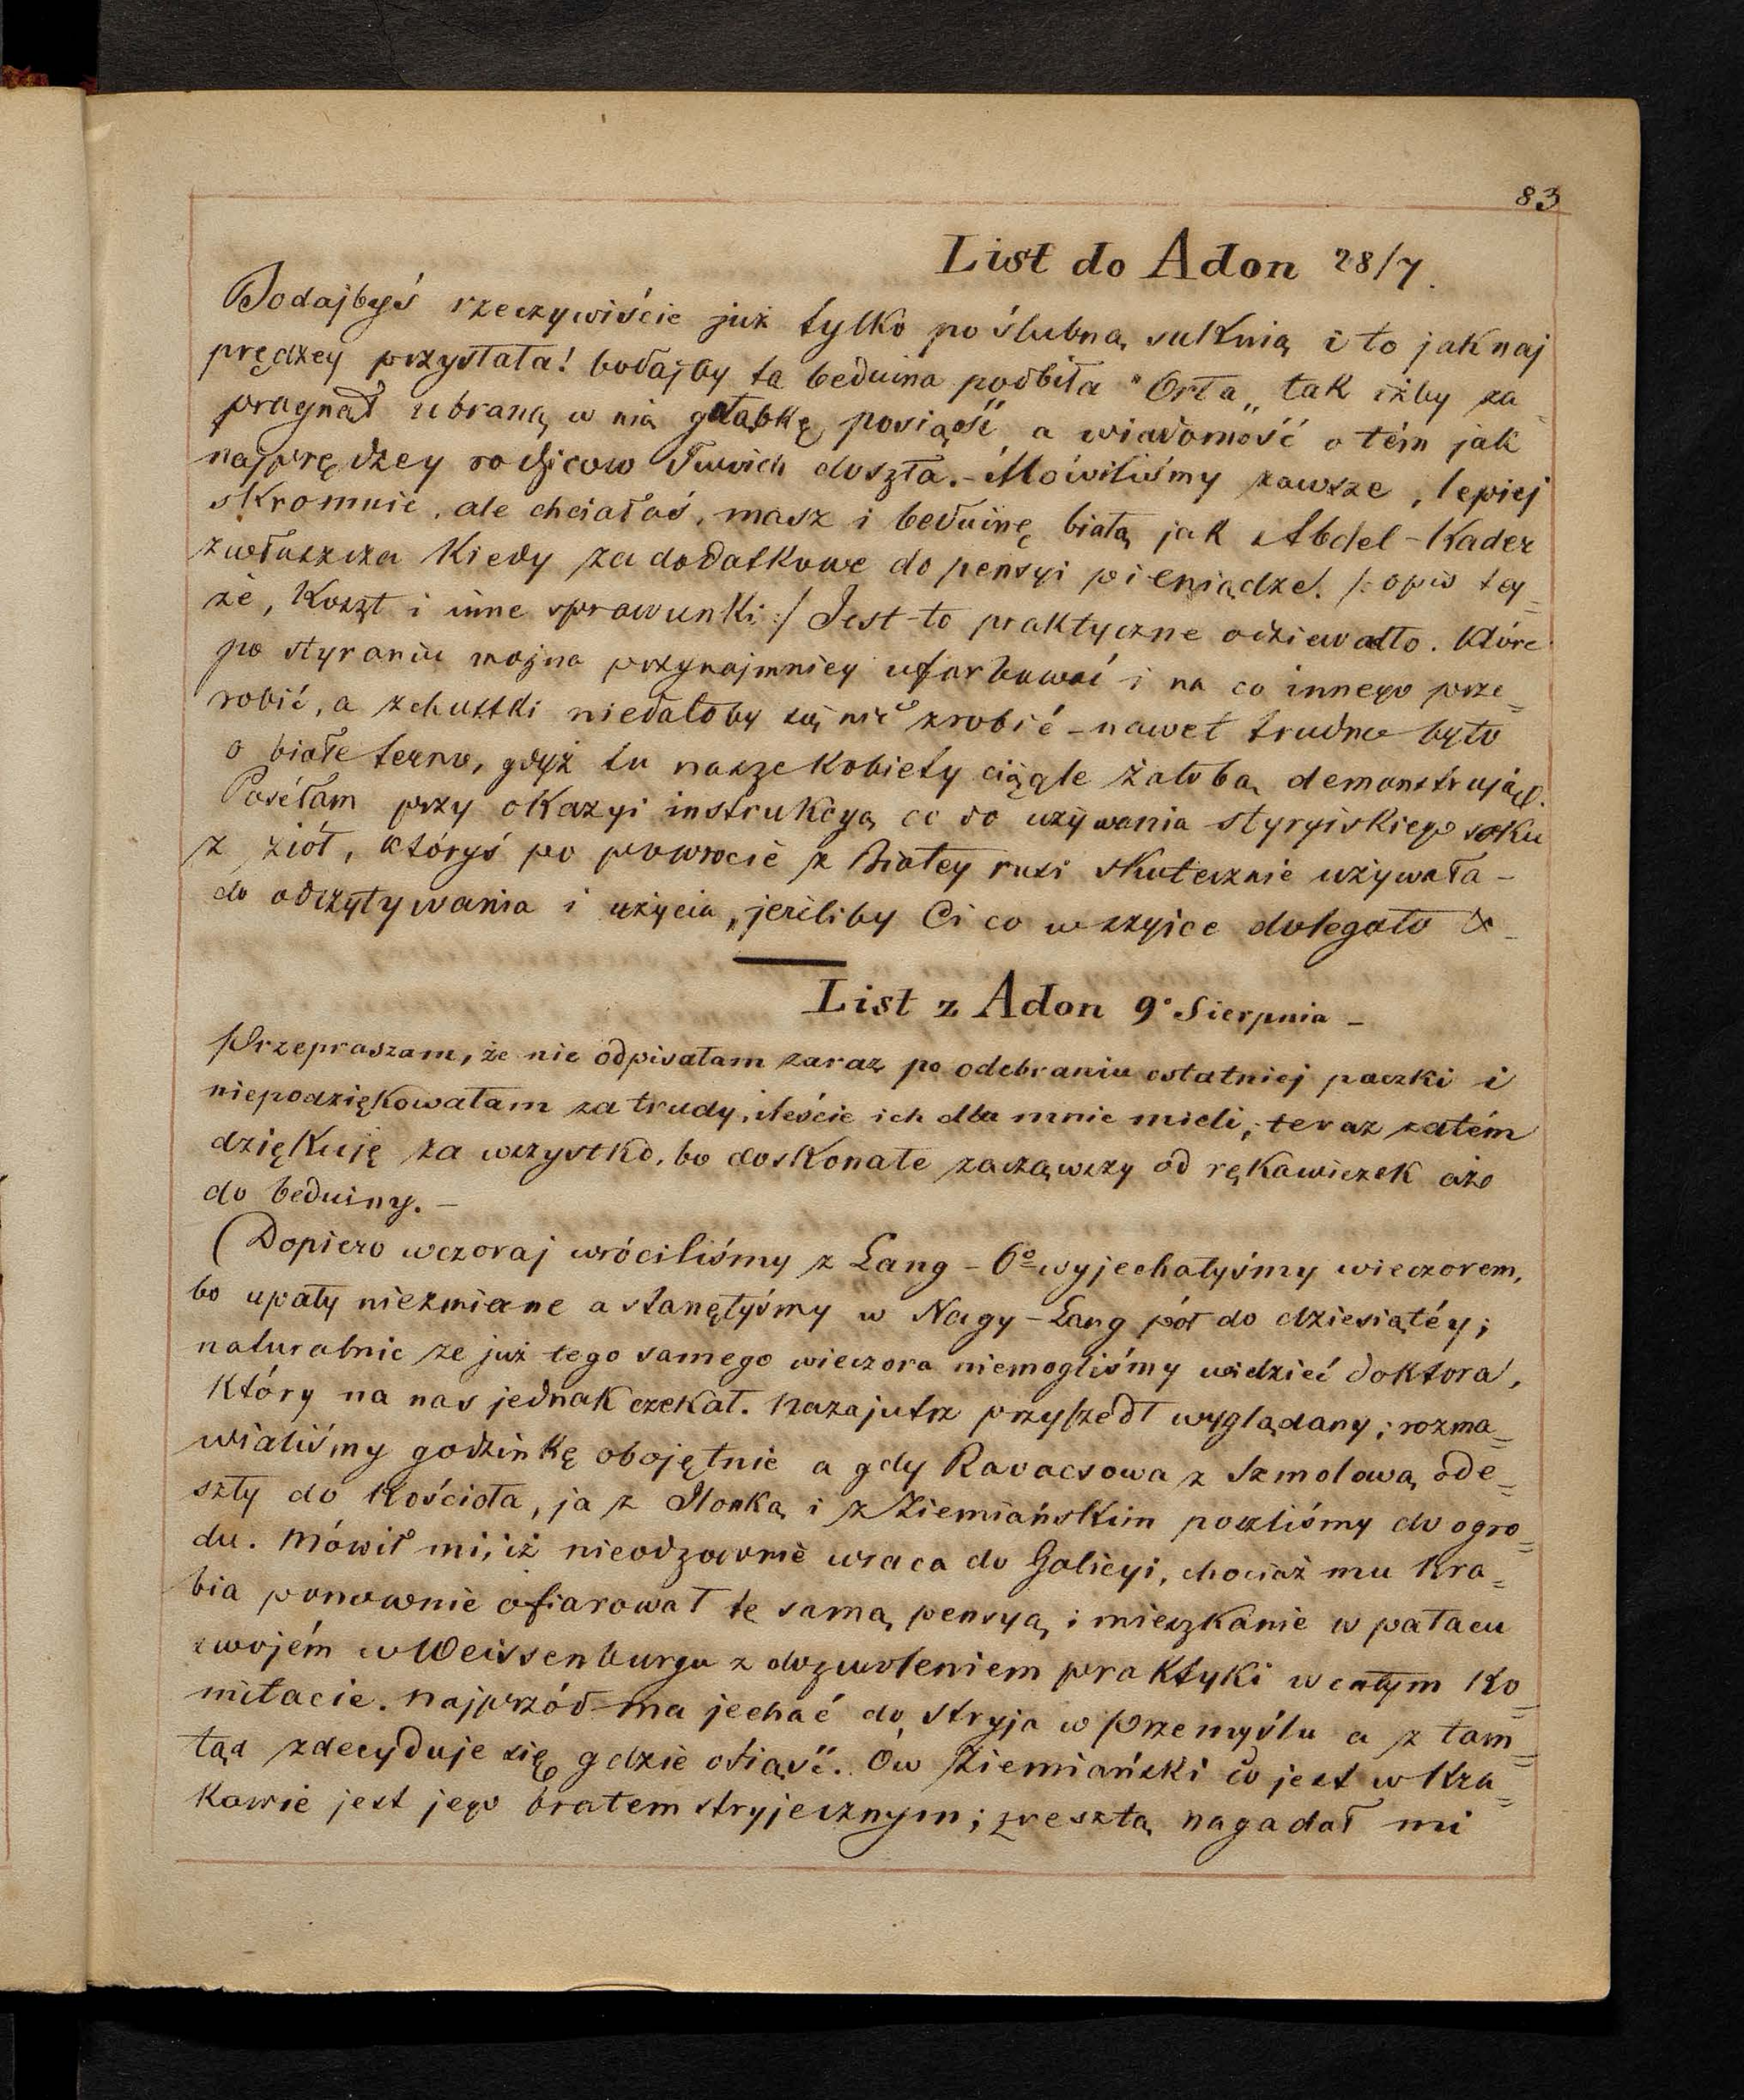 83
List do Adon 28/7.
Bodajbyś rzeczywiście już tylko po ślubną suknią i to jaknaj
prędzey przystała! bodajby ta beduina podbiła "Orła„ tak iżby za=
pragnął ubraną w nią gołąbkę posiąść a wiadomość o tém jak
najprędzey rodziców Twoich doszła. - Mówiliśmy zawsze, lepiej
skromnie, ale chciałaś, masz i beduinę białą jak Abdel-Kader
zwłaszcza kiedy za dodatkowe do pensyi pieniądze. /: opis tey=
że, koszt i inne sprawunki :/ Jest-to praktyczne odziewadło. które
po styraniu można przynajmniey ufarbować i na co innego prze=
robić, a z chustki niedałoby się nic zrobić - nawet trudno było
o białe terno, gdyż tu nasze kobiety ciągle żałobą demonstrują.
Posełam przy okazyi instrukcyą co do używania styryiskiego soku
z ziół, któryś po powrocie z Białey rusi skutecznie używała -
do odczytywania i użycia, jeżeliby Ci co w szyice dolegało &
List z Adon 9° Sierpnia -
Przepraszam, że nie odpisałam zaraz po odebraniu ostatniej paczki i
niepodziękowałam za trudy, iłeście ich dla mnie mieli; teraz zatém
dziękuję za wszystko, bo doskonałe zacząwszy od rękawiczek aże
do beduiny. -
(Dopiero wczoraj wróciliśmy z Lang - 6° wyjechałyśmy wieczorem,
bo upały niezmiane a stanęłyśmy w Nagy-Lang pół do dziesiątéy;
naturalnie że już tego samego wieczora niemogliśmy widzieć doktora,
który na nas jednak czekał. Nazajutrz przyszedł wyglądany; rozma=
wialiśmy godzinkę obojętnie a gdy Ravacsowa z Szmolową ode=
szły do kościoła, ja z Ilonką i z Ziemiańskim poszliśmy do ogro=
du. Mówił mi, iż nieodzownie wraca do Galicyi, chociaż mu hra=
bia ponownie ofiarował tę samą pensyą i mieszkanie w pałacu
swojém w Weissenburgu z dozwoleniem praktyki w całym Ko=
mitacie. Najprzód ma jechać do stryja w Przemyślu a z tam=
tąd zdecyduje się gdzie osiąść. Ów Ziemiański co jest w Kra=
kowie jest jego bratem stryjecznym; zresztą nagadał mi